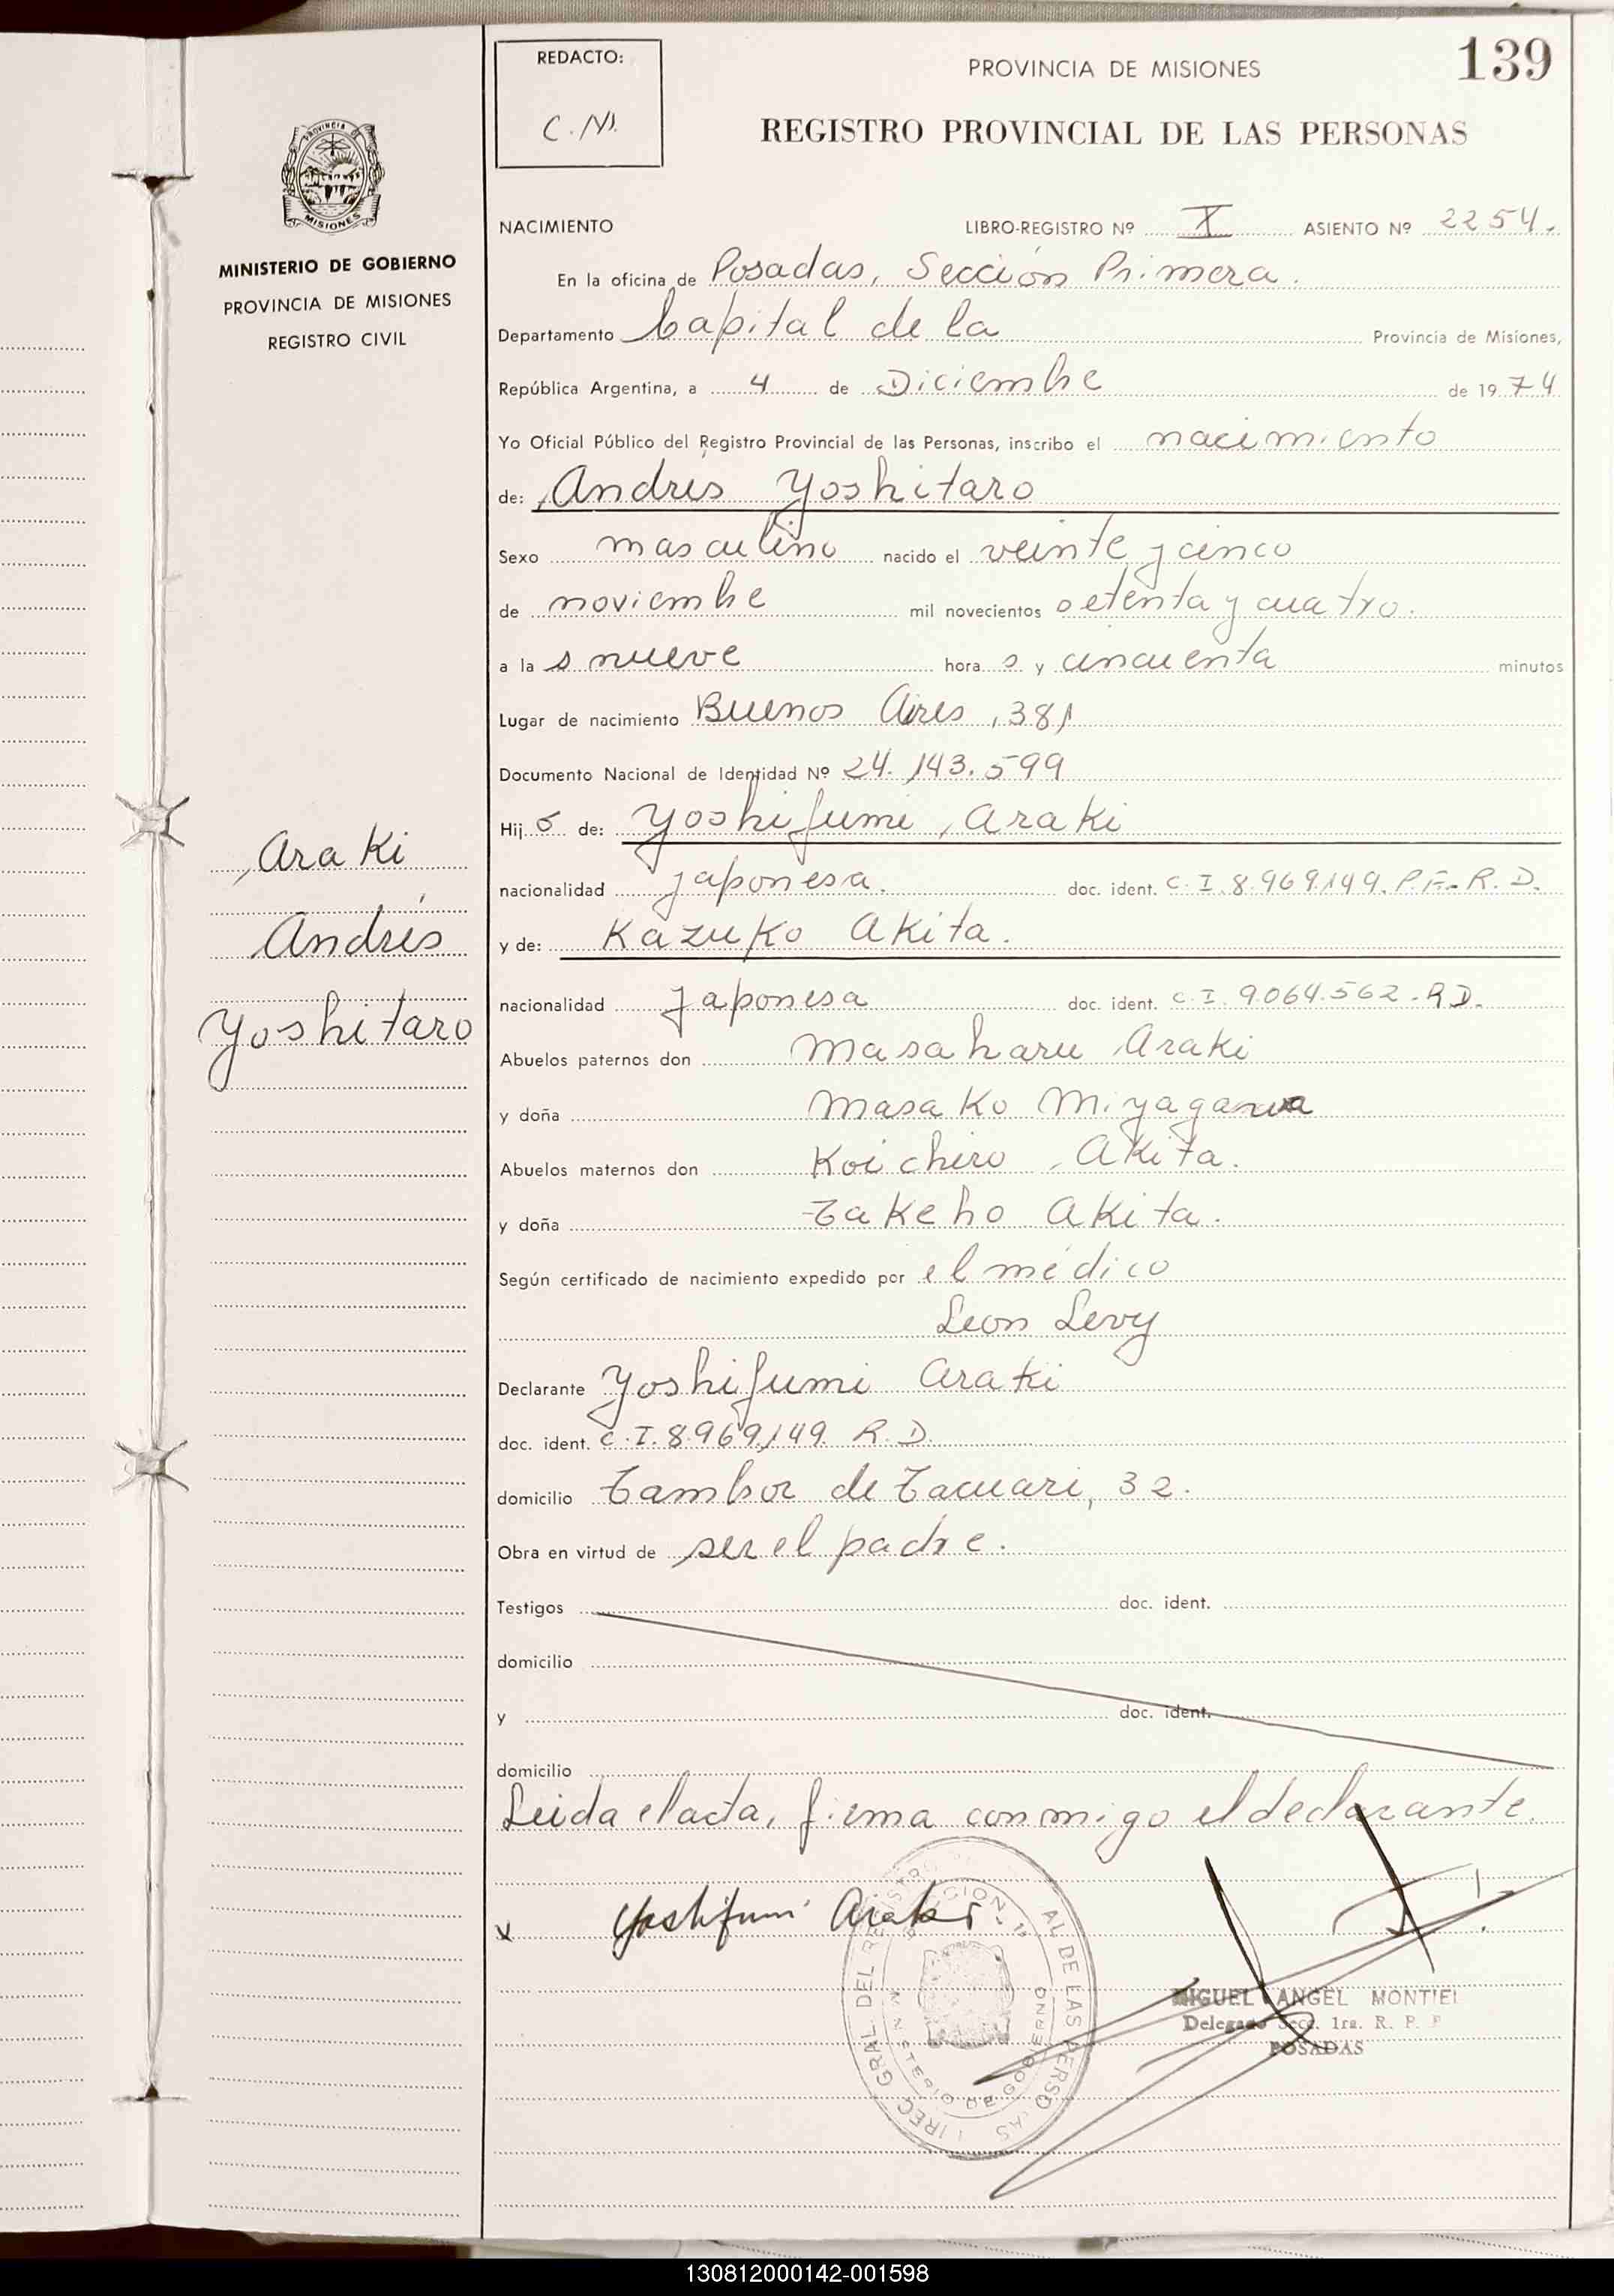 REDACTO:
C.N.
PROVINCIA DE MISIONES
139
REGISTRO PROVINCIAL DE LAS PERSONAS
PROVINCIA DE
MISIONES
MINISTERIO DE GOBIERNO
PROVINCIA DE MISIONES
REGISTRO CIVIL
NACIMIENTO LIBRO-REGISTRO Nº X ASIENTO Nº 2254.
En la oficina de Posadas, Sección Primera.
Departamento Capital de la Provincia de Misiones,
República Argentina, a 4 de Diciembre de 1974
Yo Oficial Público del Registro Provincial de las Personas, inscribo el nacimiento
de: Andrés Yoshitaro
Sexo masculino nacido el veinte y cinco
de noviembre mil novecientos setenta y cuatro.
a las nueve horas y cincuenta minutos
Lugar de nacimiento Buenos Aires, 381
Documento Nacional de Identidad Nº 24.143.599
Hijo de: Yoshifumi Araki
nacionalidad japonesa. doc. ident. C.I.8.969.149.P.F.R.D.
y de: Kazuko Akita.
nacionalidad Japonesa doc. ident. C.I.9.064.562.R.D.
Abuelos paternos don Masaharu Araki
y doña Masako Miyagawa
Abuelos maternos don Koichiro Akita.
y doña Takeho Akita.
Según certificado de nacimiento expedido por el médico
Leon Levy
Declarante Yoshifumi Araki
doc. ident. C.I.8.969.149 R.D.
domicilio Tambor de Tacuari, 32.
Obra en virtud de ser el padre.
Testigos doc. ident.
domicilio
y doc. ident.
domicilio
Leida el acta, firma conmigo el declarante.
x Yoshifumi Araki.
Araki
Andrés
Yoshitaro
MIGUEL ANGEL MONTIEL
Delegado Secc. 1ra. R. P. P.
POSADAS
130812000142-001598